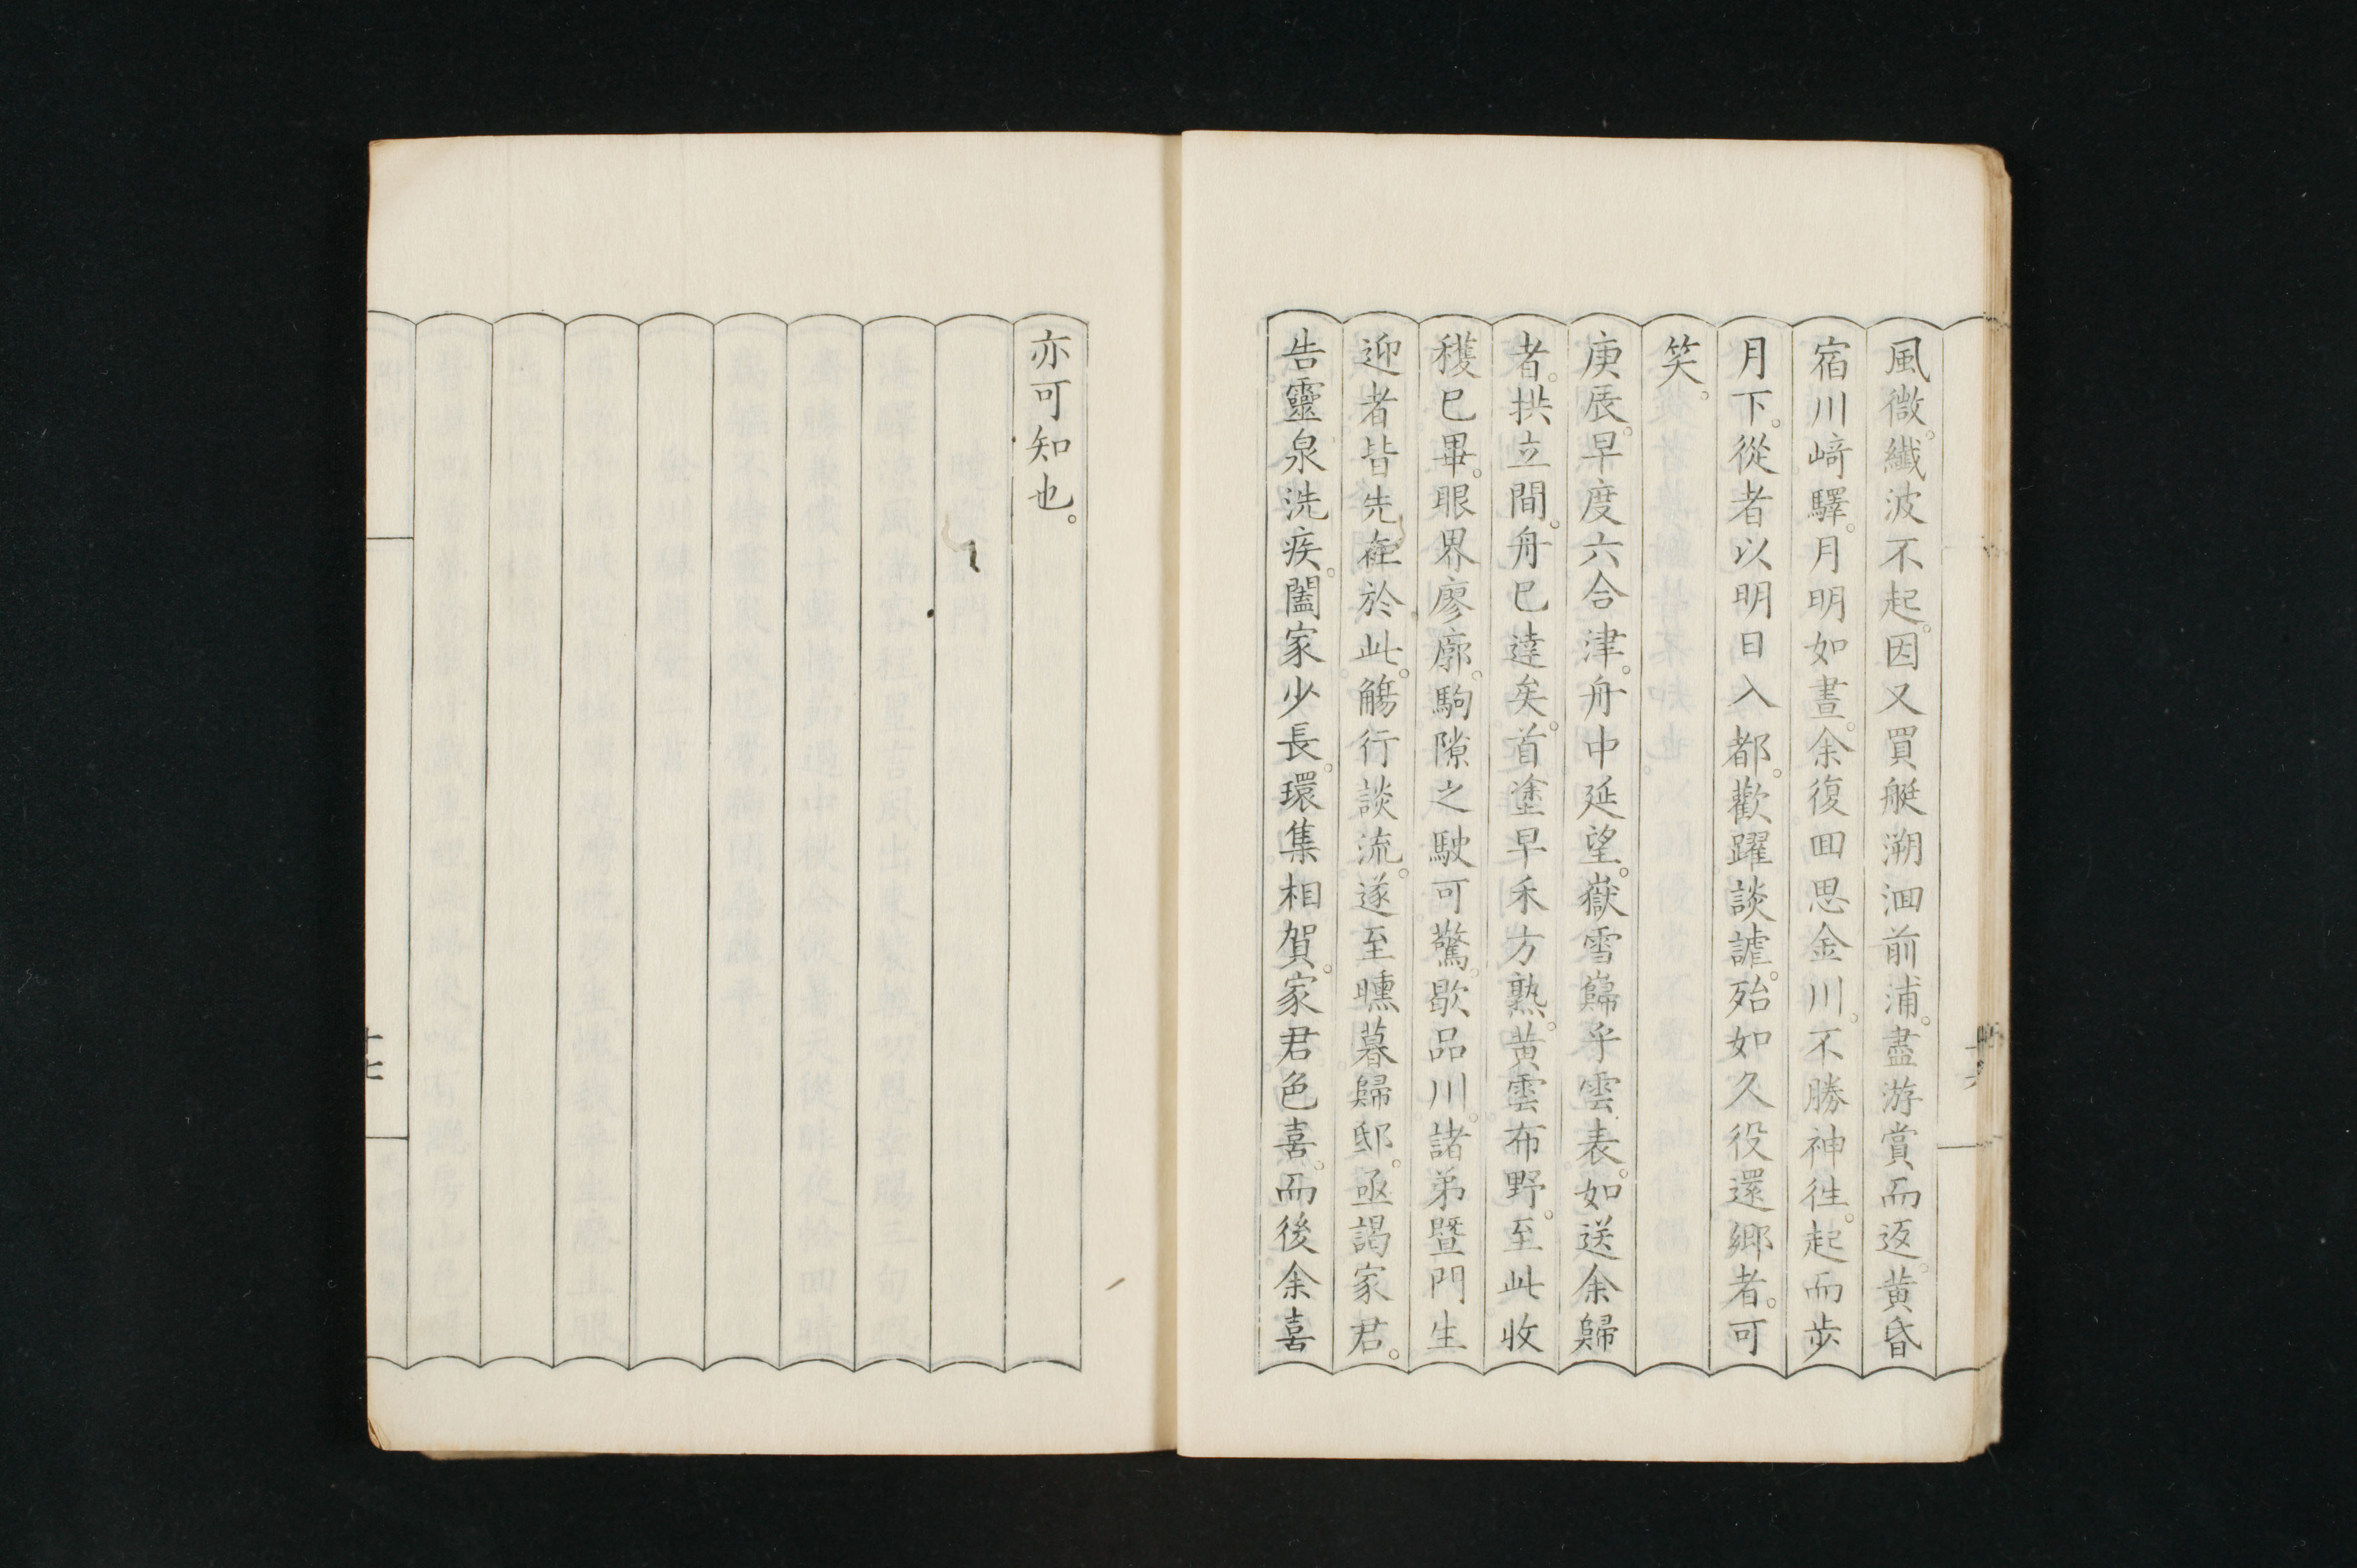 風微。纎波不起。因又買艇溯洄前浦。盡游賞而返。黄昏
宿川﨑驛。月明如晝。余復回思金川。不勝神徃。起而步
月下。從者以明日入都。歡躍談謔。殆如久役還鄉者。可
笑。
庚辰。早度六合津。舟中延望。嶽雪巋乎雲表。如送余歸
者。拱立間。舟已達矣。首塗早禾方熟。黄雲布野。至此收
穫已畢。眼界廖廓。駒隙之駛可驚。歇品川。諸弟暨門生
迎者皆先在於此。觴行談流。遂至曛暮歸邸。亟謁家君。
告靈泉洗疾。闔家少長。環集相賀。家君色喜。而後余喜
亦可知也。
十七